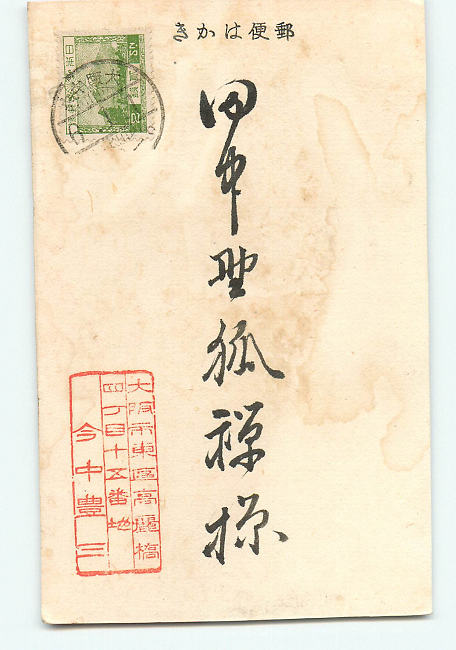 郵便はかき
田中野狐禅様
大阪市東区高麗橋
四丁目十五番地
今中豊三